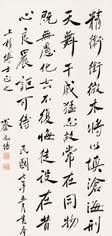 精衛銜微木將以填滄海刑
天舞干戚猛志故常在同物
既無慮化去不復悔徒設在昔
心良晨詎可待 民國年五月
博士正之 蔡元培